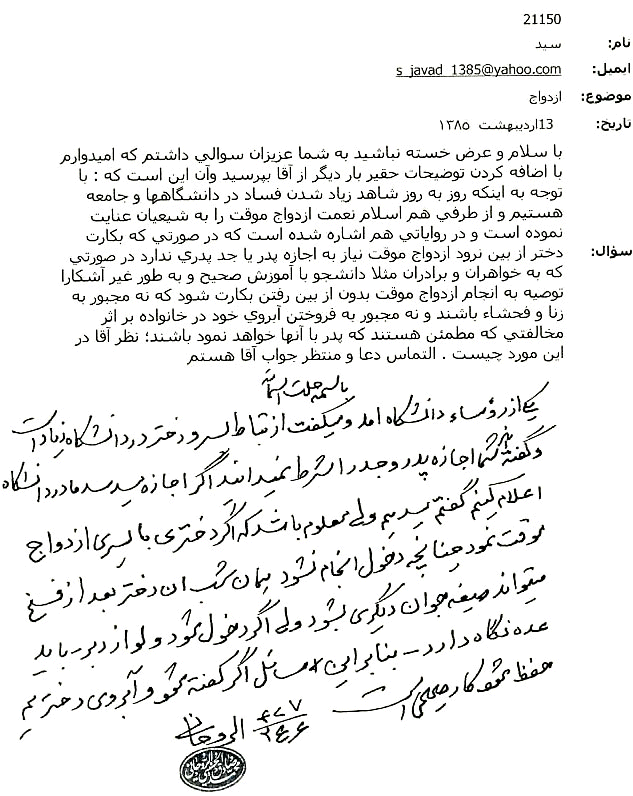 21150
نام: سید
ایمیل: s_javad_1385@yahoo.com
موضوع: ازدواج
تاریخ: 13اردیبهشت ۱۳۸۵
با سلام و عرض خسته نباشید به شما عزیزان سوالي داشتم که امیدوارم
با اضافه کردن توضیحات حقیر بار دیگر از آقا بپرسید وآن این است که : با
توجه به اینکه روز به روز شاهد زیاد شدن فساد در دانشگاهها و جامعه
هستیم و از طرفي هم اسلام نعمت ازدواج موقت را به شیعیان عنایت
نموده است و در روایاتي هم اشاره شده است که در صورتي که بکارت
سؤال: دختر از بین نرود ازدواج موقت نیاز به اجازه پدر یا جد پدري ندارد در صورتي
که به خواهران و برادران مثلا دانشجو با آموزش صحیح و به طور غیر آشکارا
توصیه به انجام ازدواج موقت بدون از بین رفتن بکارت شود که نه مجبور به
زنا و فحشاء باشند و نه مجبور به فروختن آبروي خود در خانواده بر اثر
مخالفتي که مطمئن هستند که پدر با آنها خواهد نمود باشند؛ نظر آقا در
این مورد چیست . التماس دعا و منتظر جواب آقا هستم
باسمه جلت اسمائه
یکی از رؤساء دانشگاه امد و میگفت ارتباط پسر و دختر در دانشگاه زیاد است
و گفته شما اجازه پدر و جد را شرط نمیدانید اگر اجازه میدهید ما در دانشگاه
اعلام کنیم گفتم میدهیم ولی معلوم باشد که اگر دختری با پسری ازدواج
موقت نمود چنانچه دخول انجام نشود همان شب ان دختر بعد از فسخ
میتواند صیغه جوان دیگری بشود ولی اگر دخول بشود ولو از دبر - باید
عده نگاه دارد - بنابراین مسائل اگر گفته شود و آبروی دختر هم
حفظ شود کار صحیحی است
الروحانی